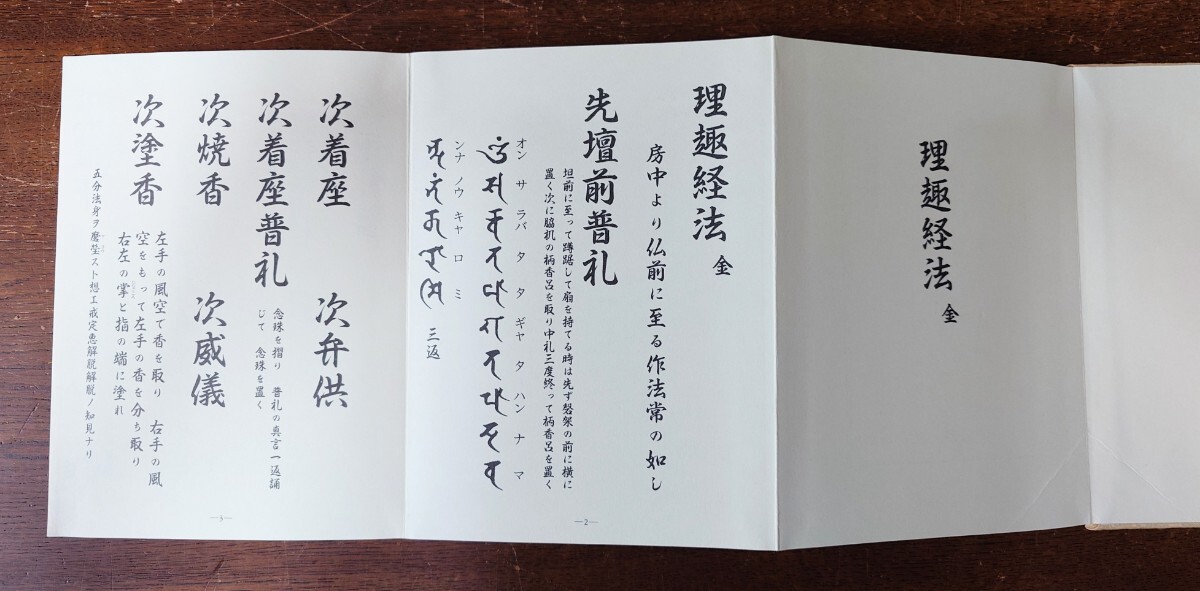 理趣経法 金
理趣経法 金
房中より仏前に至る作法常の如し
先壇前普礼
坦前に至って蹲踞して扇を持てる時は先ず磬架の前に横に
置く次に脇机の柄香呂を取り中礼三度終って柄香呂を置く
オン サ ラバ タ タ ギャ タ ハン ナ マ
ンナ ノウ キャ ロ ミ
三返
—2—
次着座 次弁供
次着座普礼
念珠を摺り 普礼の真言一返誦
じて 念珠を置く
次焼香 次威儀
次塗香
左手の風空で香を取り 右手の風
空をもって左手の香を分ち取り
右左の掌と指の端に塗れ
五分法身ヲ磨瑩スト想エ戒定恵解脱解脱ノ知見ナリ
—3—